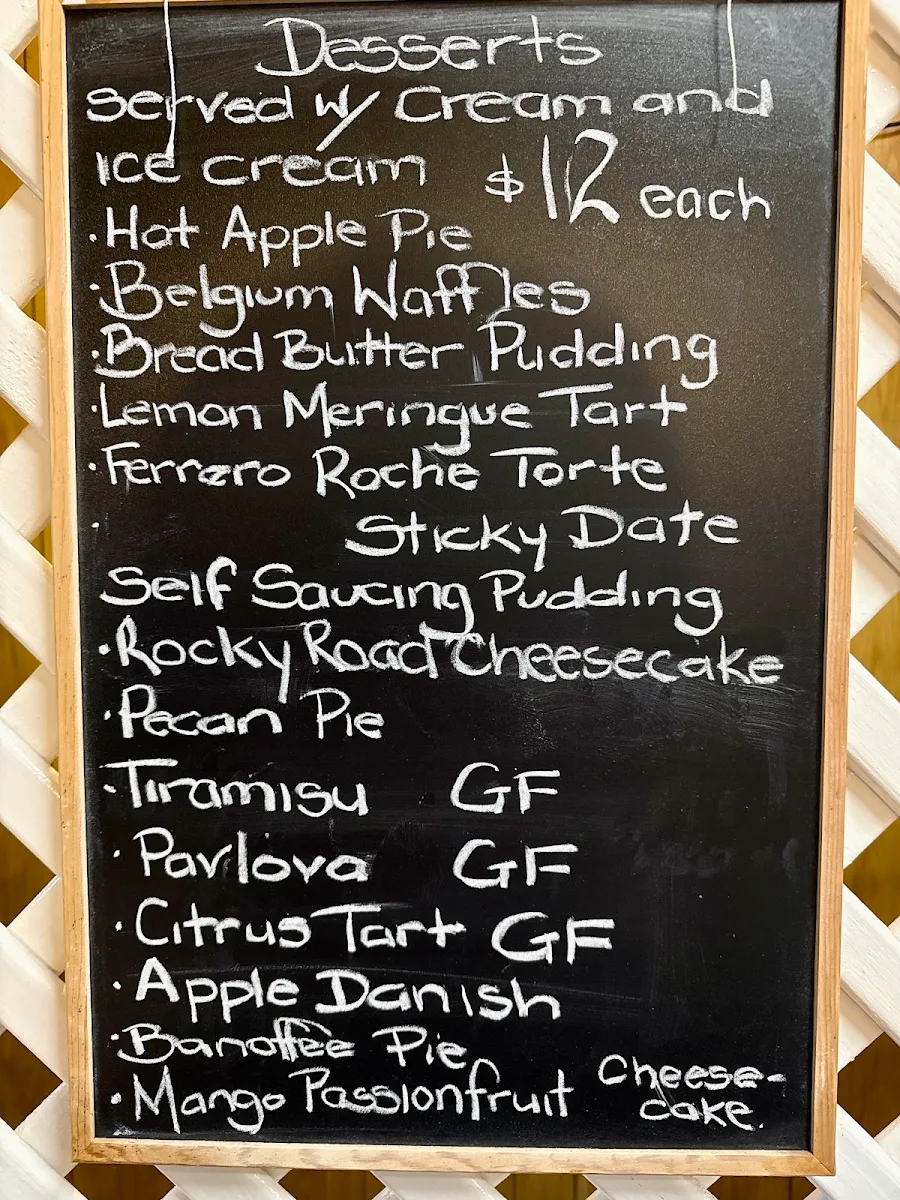 Desserts
Served w/ Cream and
ice cream $12 each
·Hot Apple Pie
·Belgium Waffles
·Bread Butter Pudding
·Lemon Meringue Tart
·Ferrero Roche Torte
· Sticky Date
Self Saucing Pudding
·Rocky Road Cheesecake
·Pecan Pie
·Tiramisu GF
·Pavlova GF
·Citrus Tart GF
·Apple Danish
·Banoffee Pie
·Mango Passionfruit Cheese-
cake.